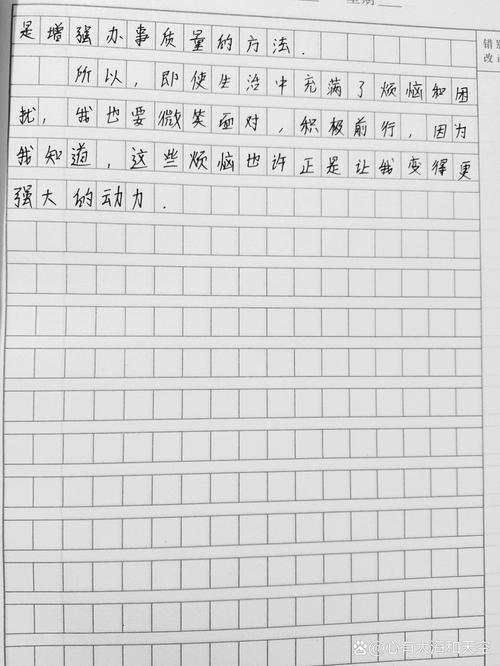 星期
错别
改正
是增强办事质量的方法.
所以,即使生治中充满了烦恼和困
扰,我也要微笑面对,积极前行,因为
我知道,这些烦恼也许正是让我变得更
强大的动力.
心有大海和天空